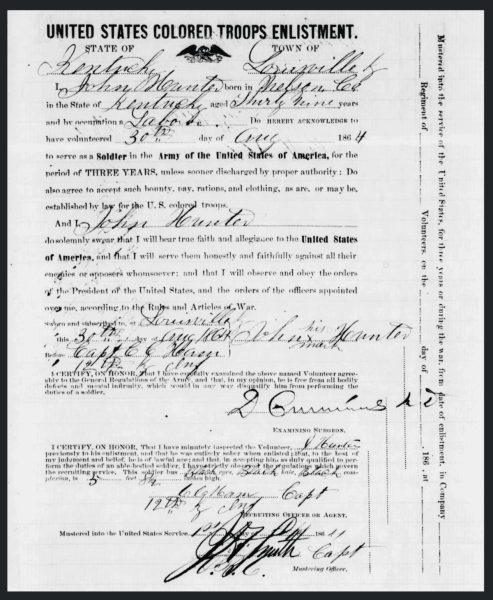 UNITED STATES COLORED TROOPS ENLISTMENT.
STATE OF TOWN OF
Kentucky Louisville
I, John Hunter born in Nelson Co
in the State of Kentucky aged Thirty Nine years
and by occupation a Labor Do HEREBY ACKNOWLEDGE to
have volunteered 30th day of Aug 1864
to serve as a Soldier in the Army of the United States of America, for the
period of THREE YEARS, unless sooner discharged by proper authority: Do
also agree to accept such bounty, pay, rations, and clothing, as are, or may be,
established by law for the U.S. colored troops.
And I John Hunter
do solemnly swear that I will bear true faith and allegiance to the United States
of America, and that I will serve them honestly and faithfully against all their
enemies or opposers whomsoever; and that I will observe and obey the orders
of the President of the United States, and the orders of the officers appointed
over me, according to the Rules and Articles of War.
Sworn and subscribed to, at Louisville
this 30th day of Aug 1864 John his Hunter
mark
Before Capt C G
12th Inf
I CERTIFY, ON HONOR, That I have carefully examined the above named Volunteer agree-
ably to the General Regulations of the Army, and that, in my opinion, he is free from all bodily
defects and mental infirmity, which would in any way disqualify him from performing the
duties of a soldier.
EXAMINING SURGEON.
I CERTIFY, ON HONOR, That I have minutely inspected the Volunteer, J Hunter
previously to his enlistment, and that he was entirely sober when enlisted; that, to the best
of my judgment and belief, he is of lawful age; and that, in accepting him, as duly qualified to per-
form the duties of an able-bodied soldier, I have strictly observed the regulations which govern
the recruiting service. This soldier has Black eyes, Black hair, Black com-
plexion, is 5 feet inches high.
C G Capt
12th Inf
RECRUITING OFFICER OR AGENT.
Mustered into the United States Service, 1st day of 186
Smith Capt
Mustering Officer.
Mustered into the service of the United States, for three years or during the war, from date of enlistment, in Company
Regiment of Volunteers, on the day of 186 , at